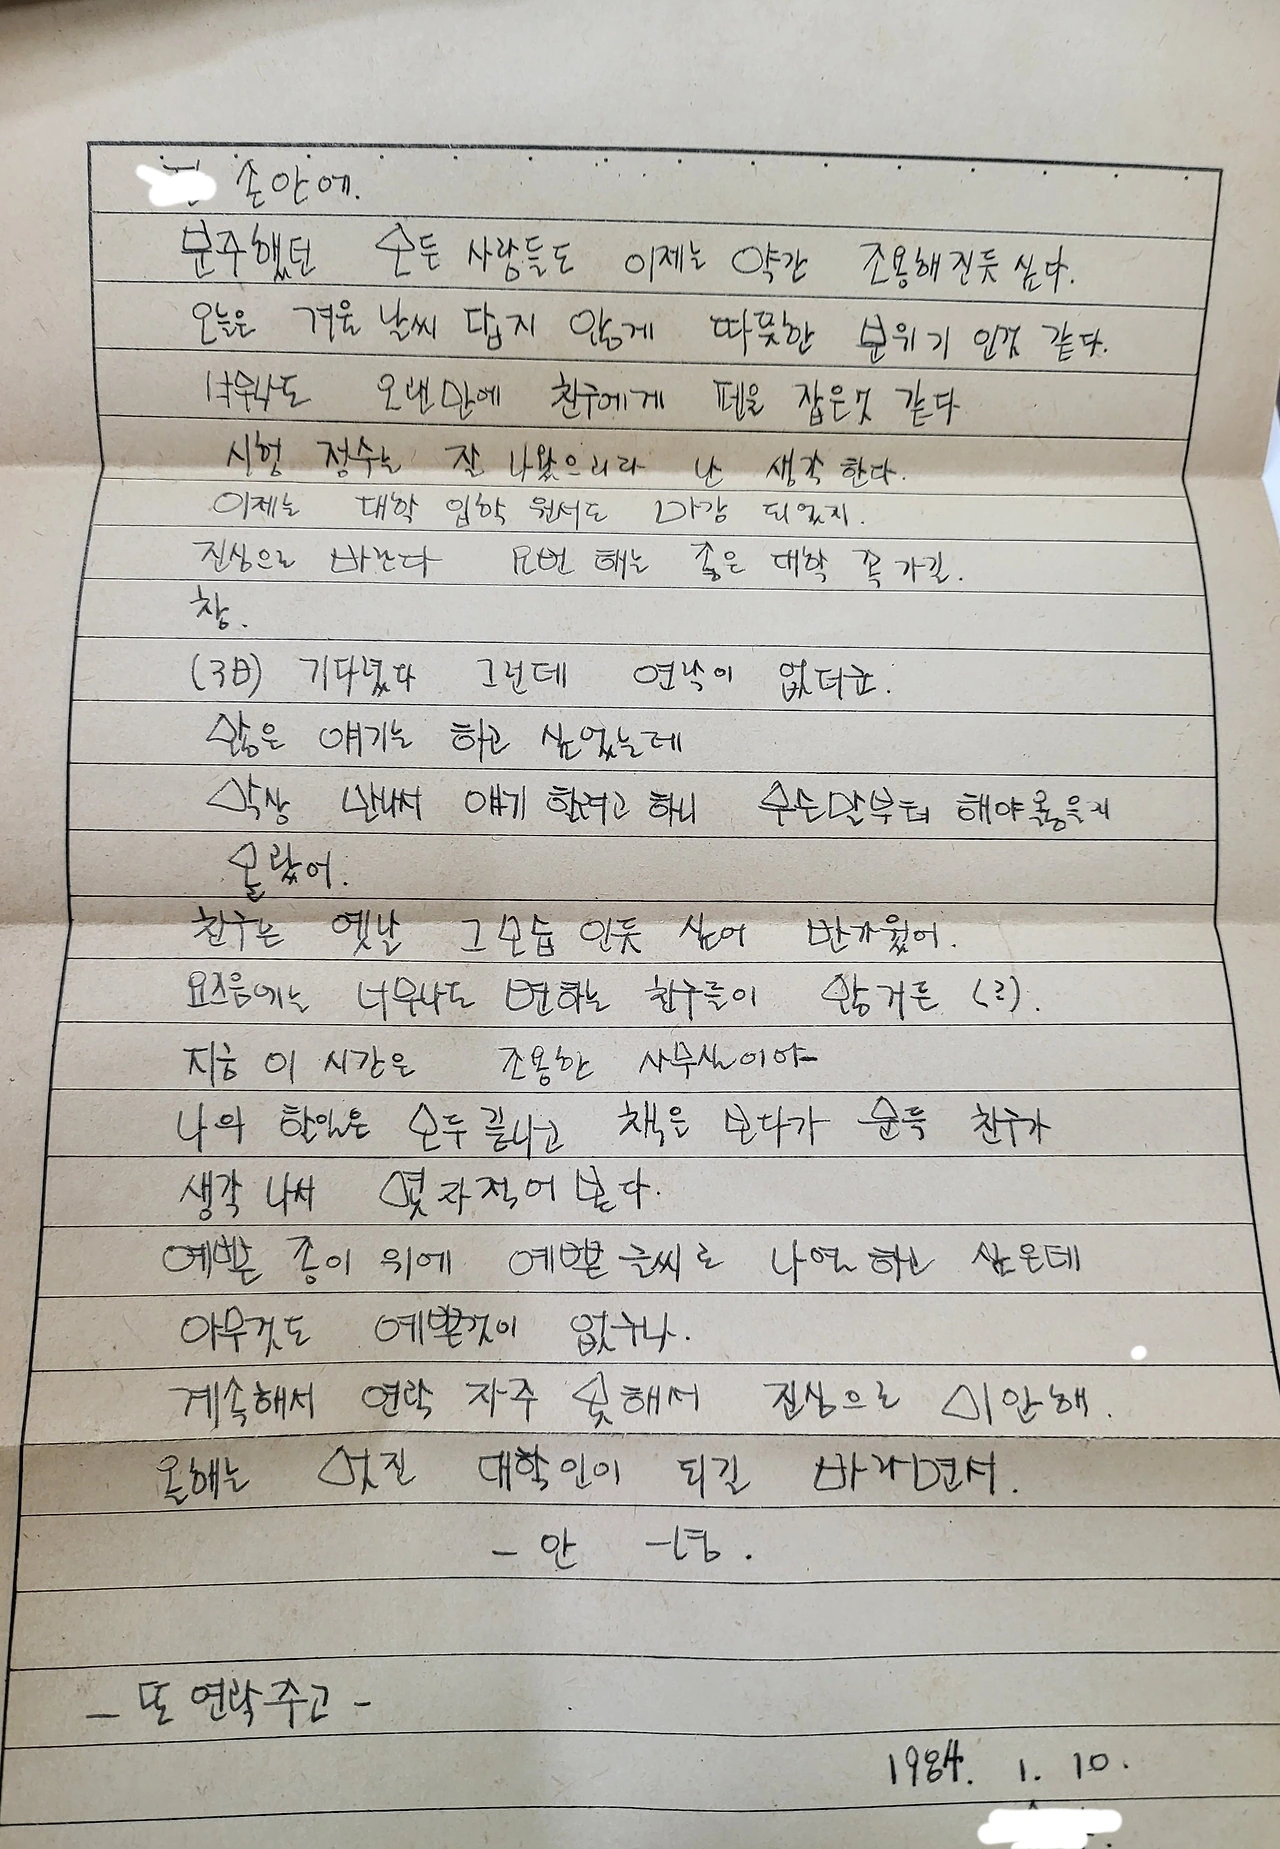 손안에.
분주했던 모든 사람들도 이제는 약간 조용해진듯 싶다.
오늘은 겨울 날씨 답지 않게 따뜻한 분위기 인것 같다.
너무나도 오랜만에 친구에게 펜을 잡은것 같다
시험 점수는 잘 나왔으리라 난 생각 한다.
이제는 대학 입학 원서도 마감 되었지.
진심으로 바란다 요번 해는 좋은 대학 꼭 가길.
참.
(3日) 기다렸다 그런데 연락이 없더군.
많은 얘기는 하고 싶었는데
막상 만나서 얘기 할려고 하니 무슨말부터 해야 옳을지
몰랐어.
친구는 옛날 그 모습 인듯 싶어 반가웠어.
요즈음에는 너무나도 변하는 친구들이 많거든 (ㄹ).
지금 이 시간은 조용한 사무실이야
나의 할일은 모두 끝나고 책을 보다가 문득 친구가
생각 나서 몇자 적어 본다.
예쁜 종이 위에 예쁜 글씨로 나열 하고 싶은데
아무것도 예쁜것이 없구나.
계속해서 연락 자주 못해서 진심으로 미안해.
올해는 멋진 대학인이 되길 바라면서.
- 안 녕.
- 또 연락주고 -
1984. 1. 10.